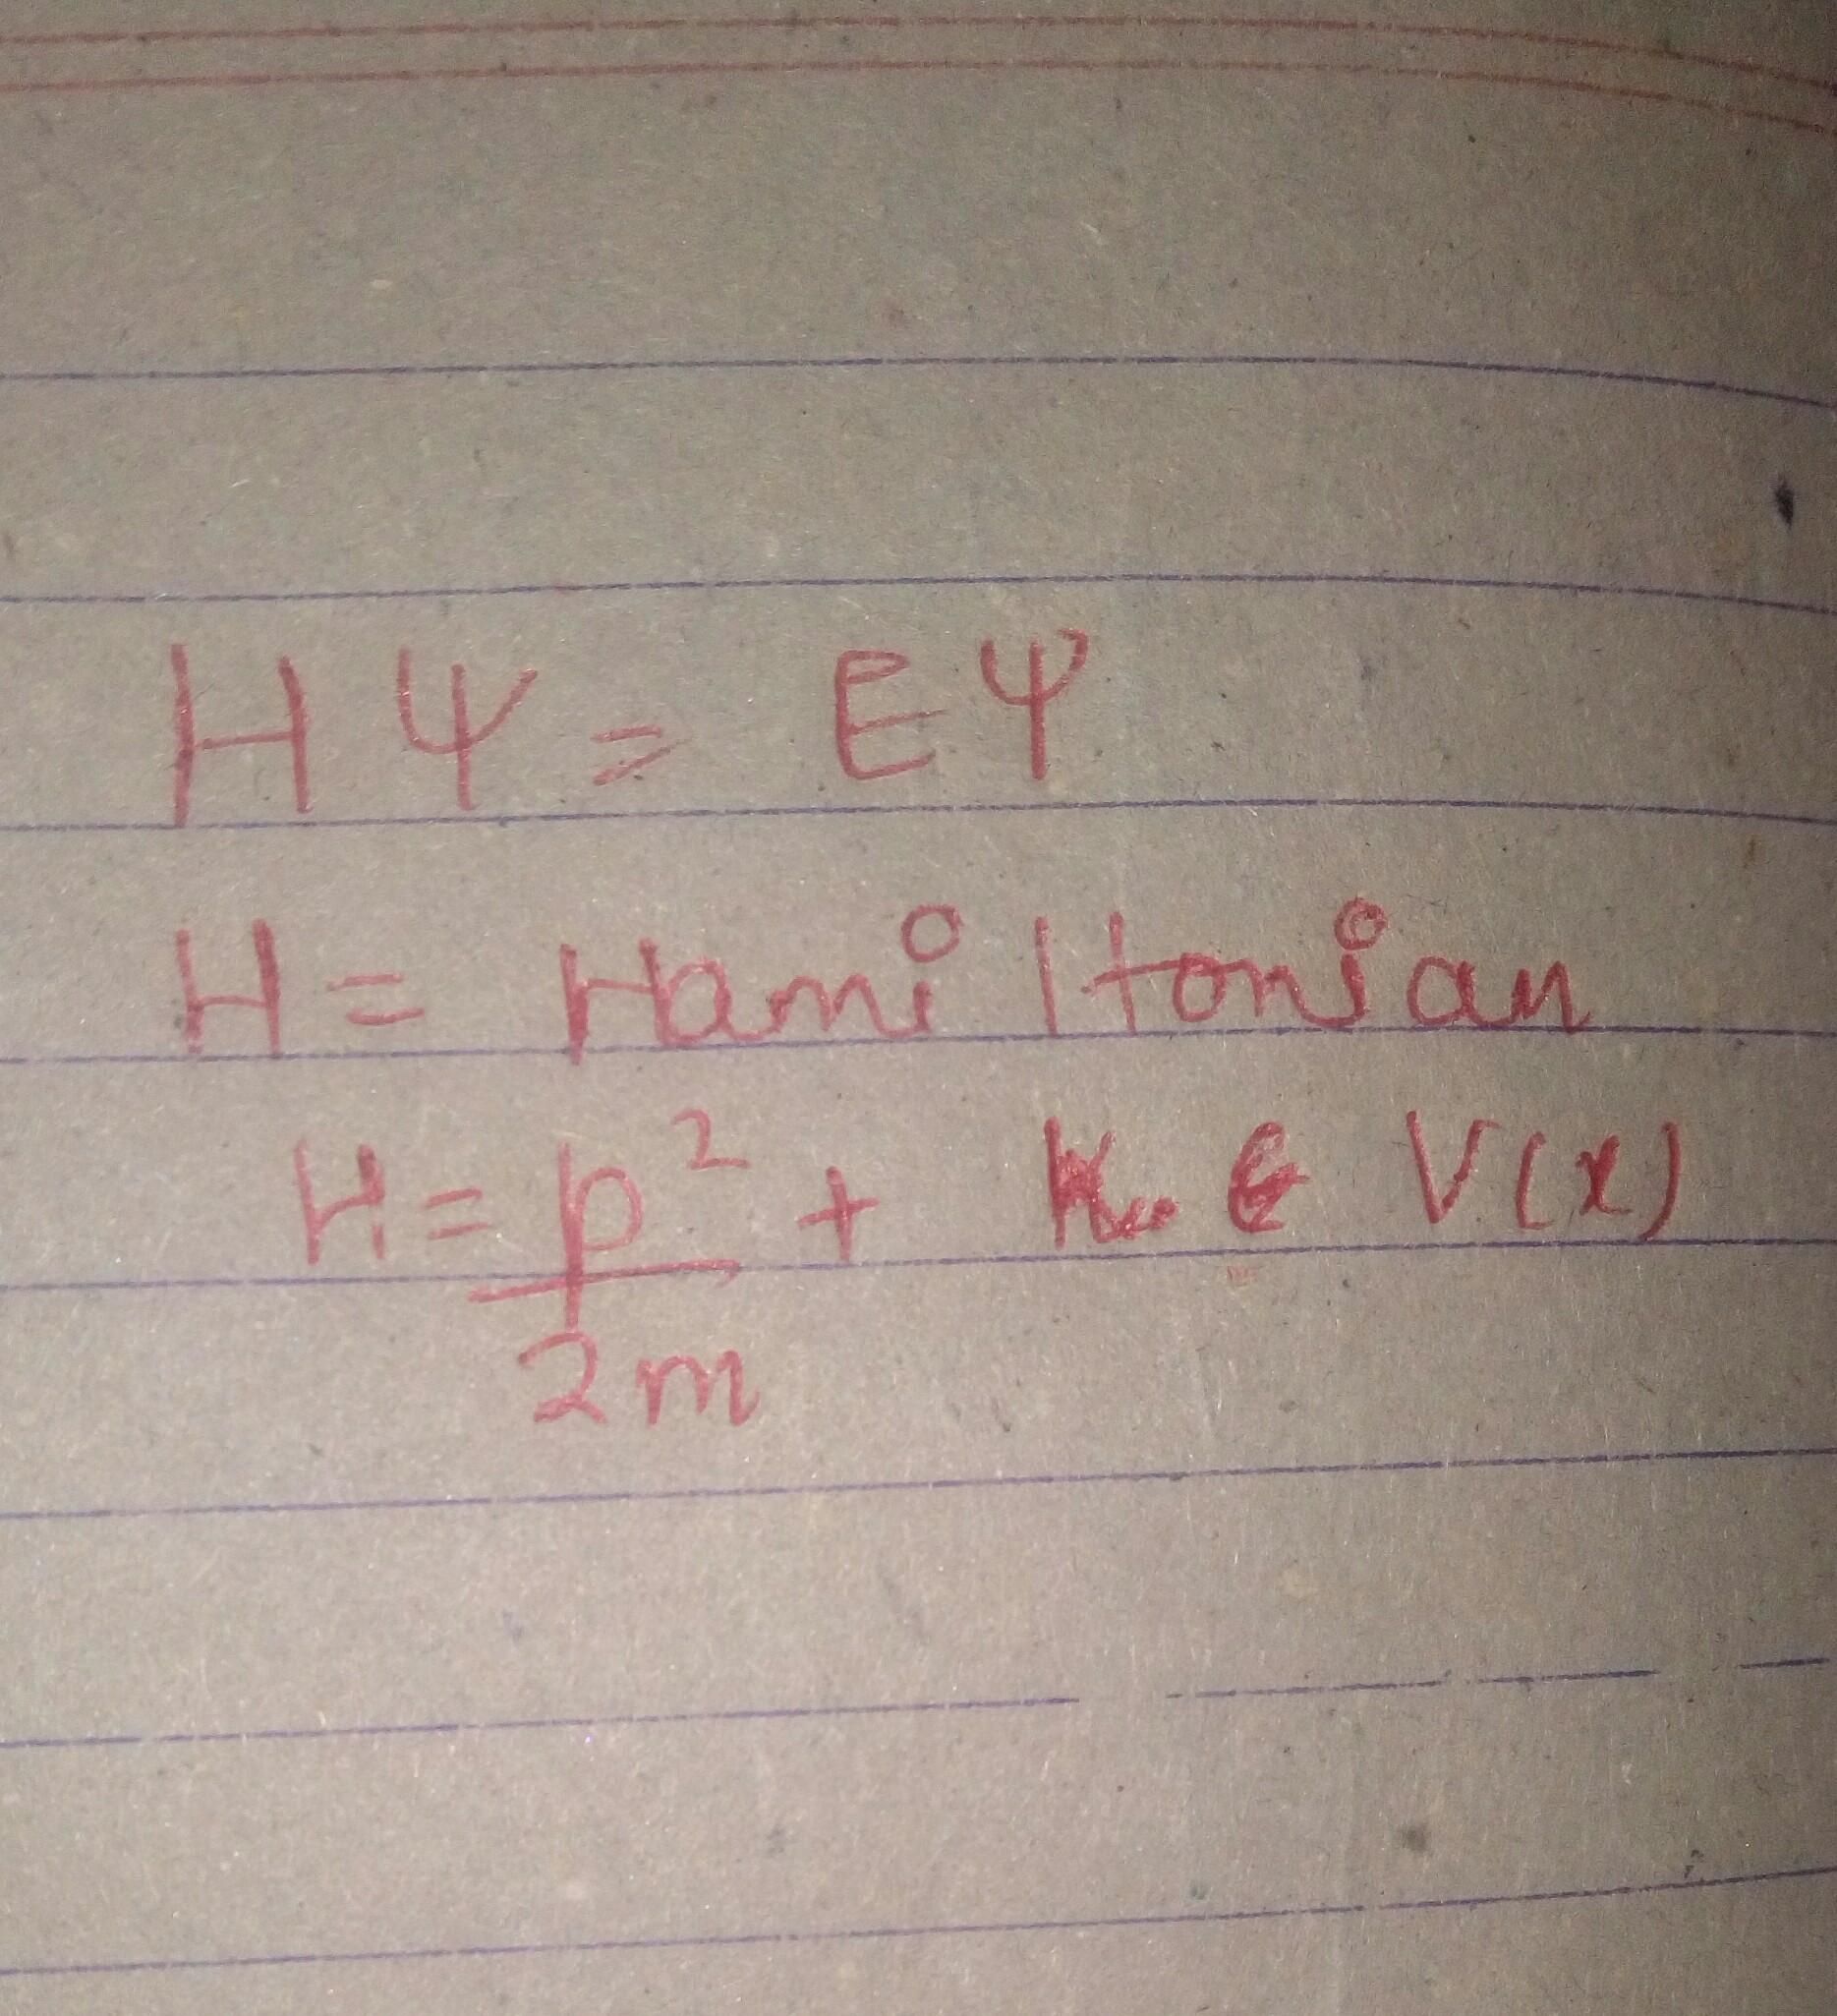 Hψ = Eψ
H = Hamiltonian
H = p²/2m + V(x)